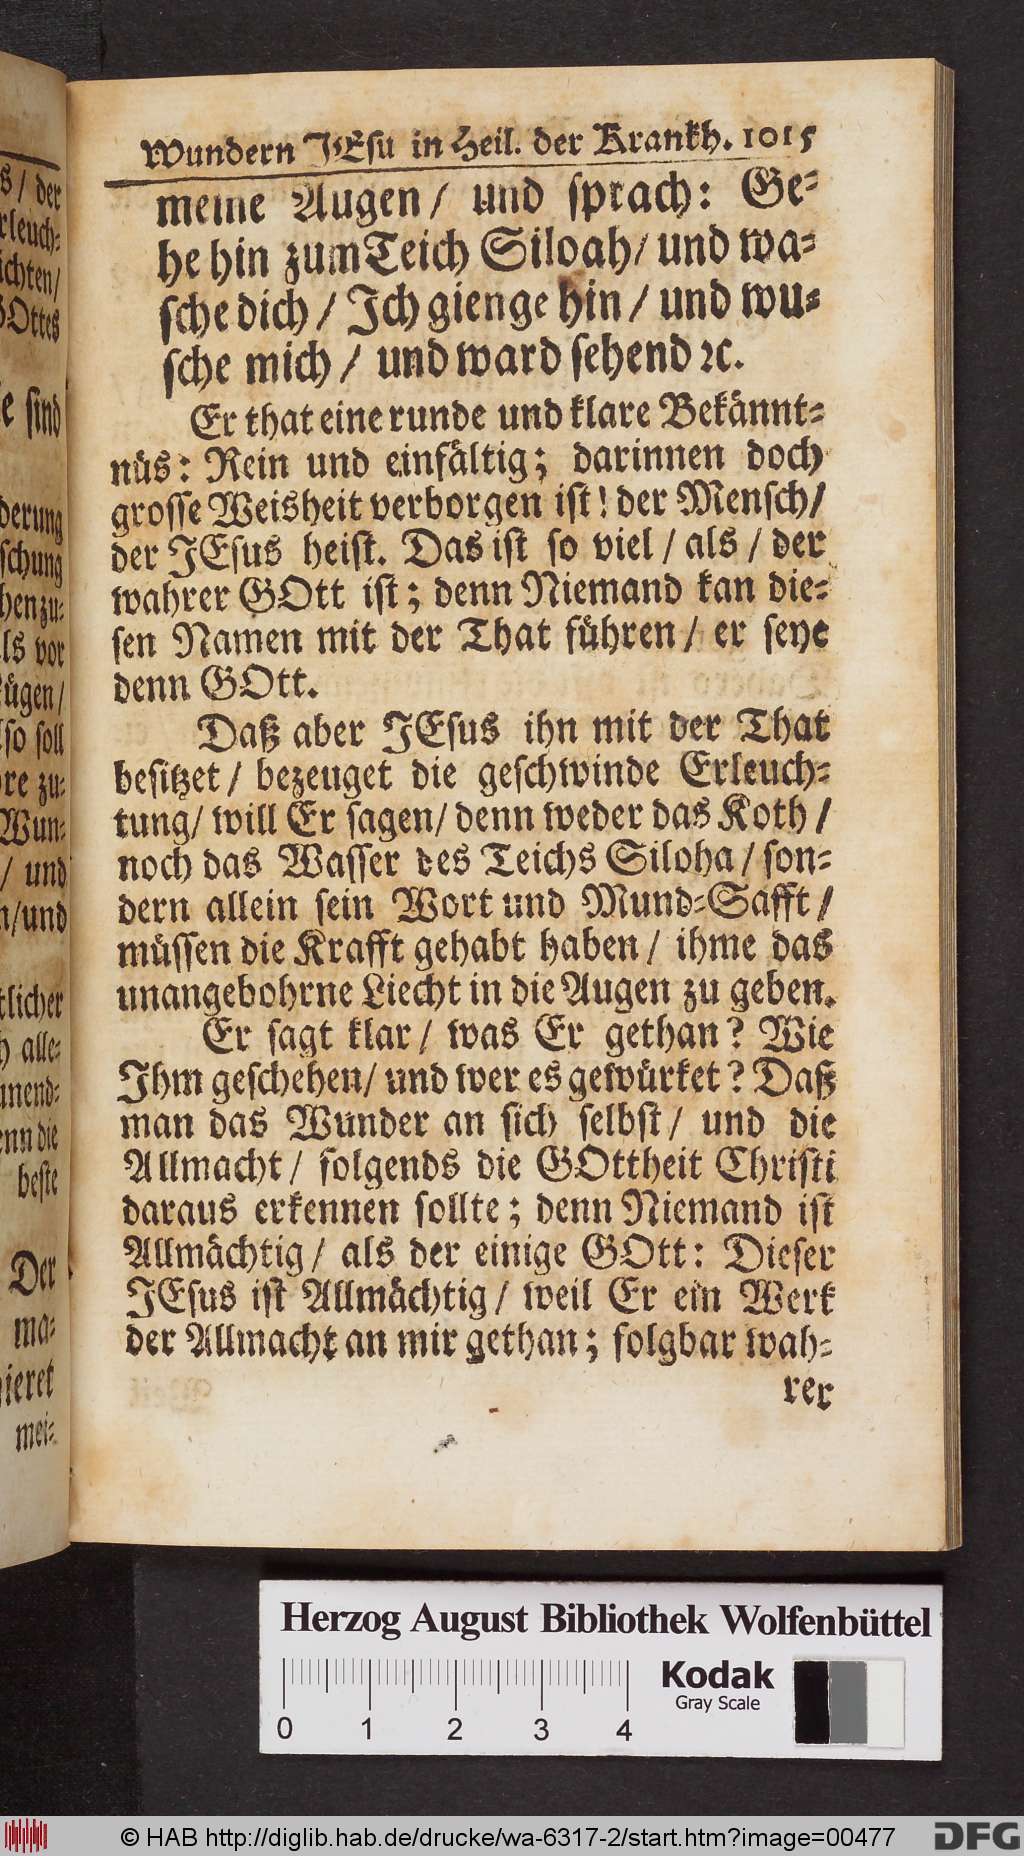 Wundern JEsu in Heil. der Krankh. 1015
meine Augen / und sprach: Ge-
he hin zum Teich Siloah / und wa-
sche dich / Ich gienge hin / und wu-
sche mich / und ward sehend ꝛc.
Er that eine runde und klare Bekännt-
nüs: Rein und einfältig; darinnen doch
grosse Weisheit verborgen ist! der Mensch /
der JEsus heist. Das ist so viel / als / der
wahrer GOtt ist; denn Niemand kan die-
sen Namen mit der That führen / er seye
denn GOtt.
Daß aber JEsus ihn mit der That
besitzet / bezeuget die geschwinde Erleuch-
tung / will Er sagen / denn weder das Koth /
noch das Wasser des Teichs Siloha / son-
dern allein sein Wort und Mund-Safft /
müssen die Krafft gehabt haben / ihme das
unangebohrne Liecht in die Augen zu geben.
Er sagt klar / was Er gethan? Wie
Ihm geschehen / und wer es gewürket? Daß
man das Wunder an sich selbst / und die
Allmacht / folgends die GOttheit Christi
daraus erkennen sollte; denn Niemand ist
Allmächtig / als der einige GOtt: Dieser
JEsus ist Allmächtig / weil Er ein Werk
der Allmacht an mir gethan; folgbar wah-
rer
s / der
rleuch-
ichten /
GOttes
e sind
derung
schung
hen zu-
ls vor
Lügen /
lso soll
re zu-
Wun-
/ und
n / und
tlicher
h alle-
nnend-
enn die
beste
Der
ma-
ieret
mei-
Herzog August Bibliothek Wolfenbüttel
Kodak
Gray Scale
0 1 2 3 4
© HAB http://diglib.hab.de/drucke/wa-6317-2/start.htm?image=00477
DFG